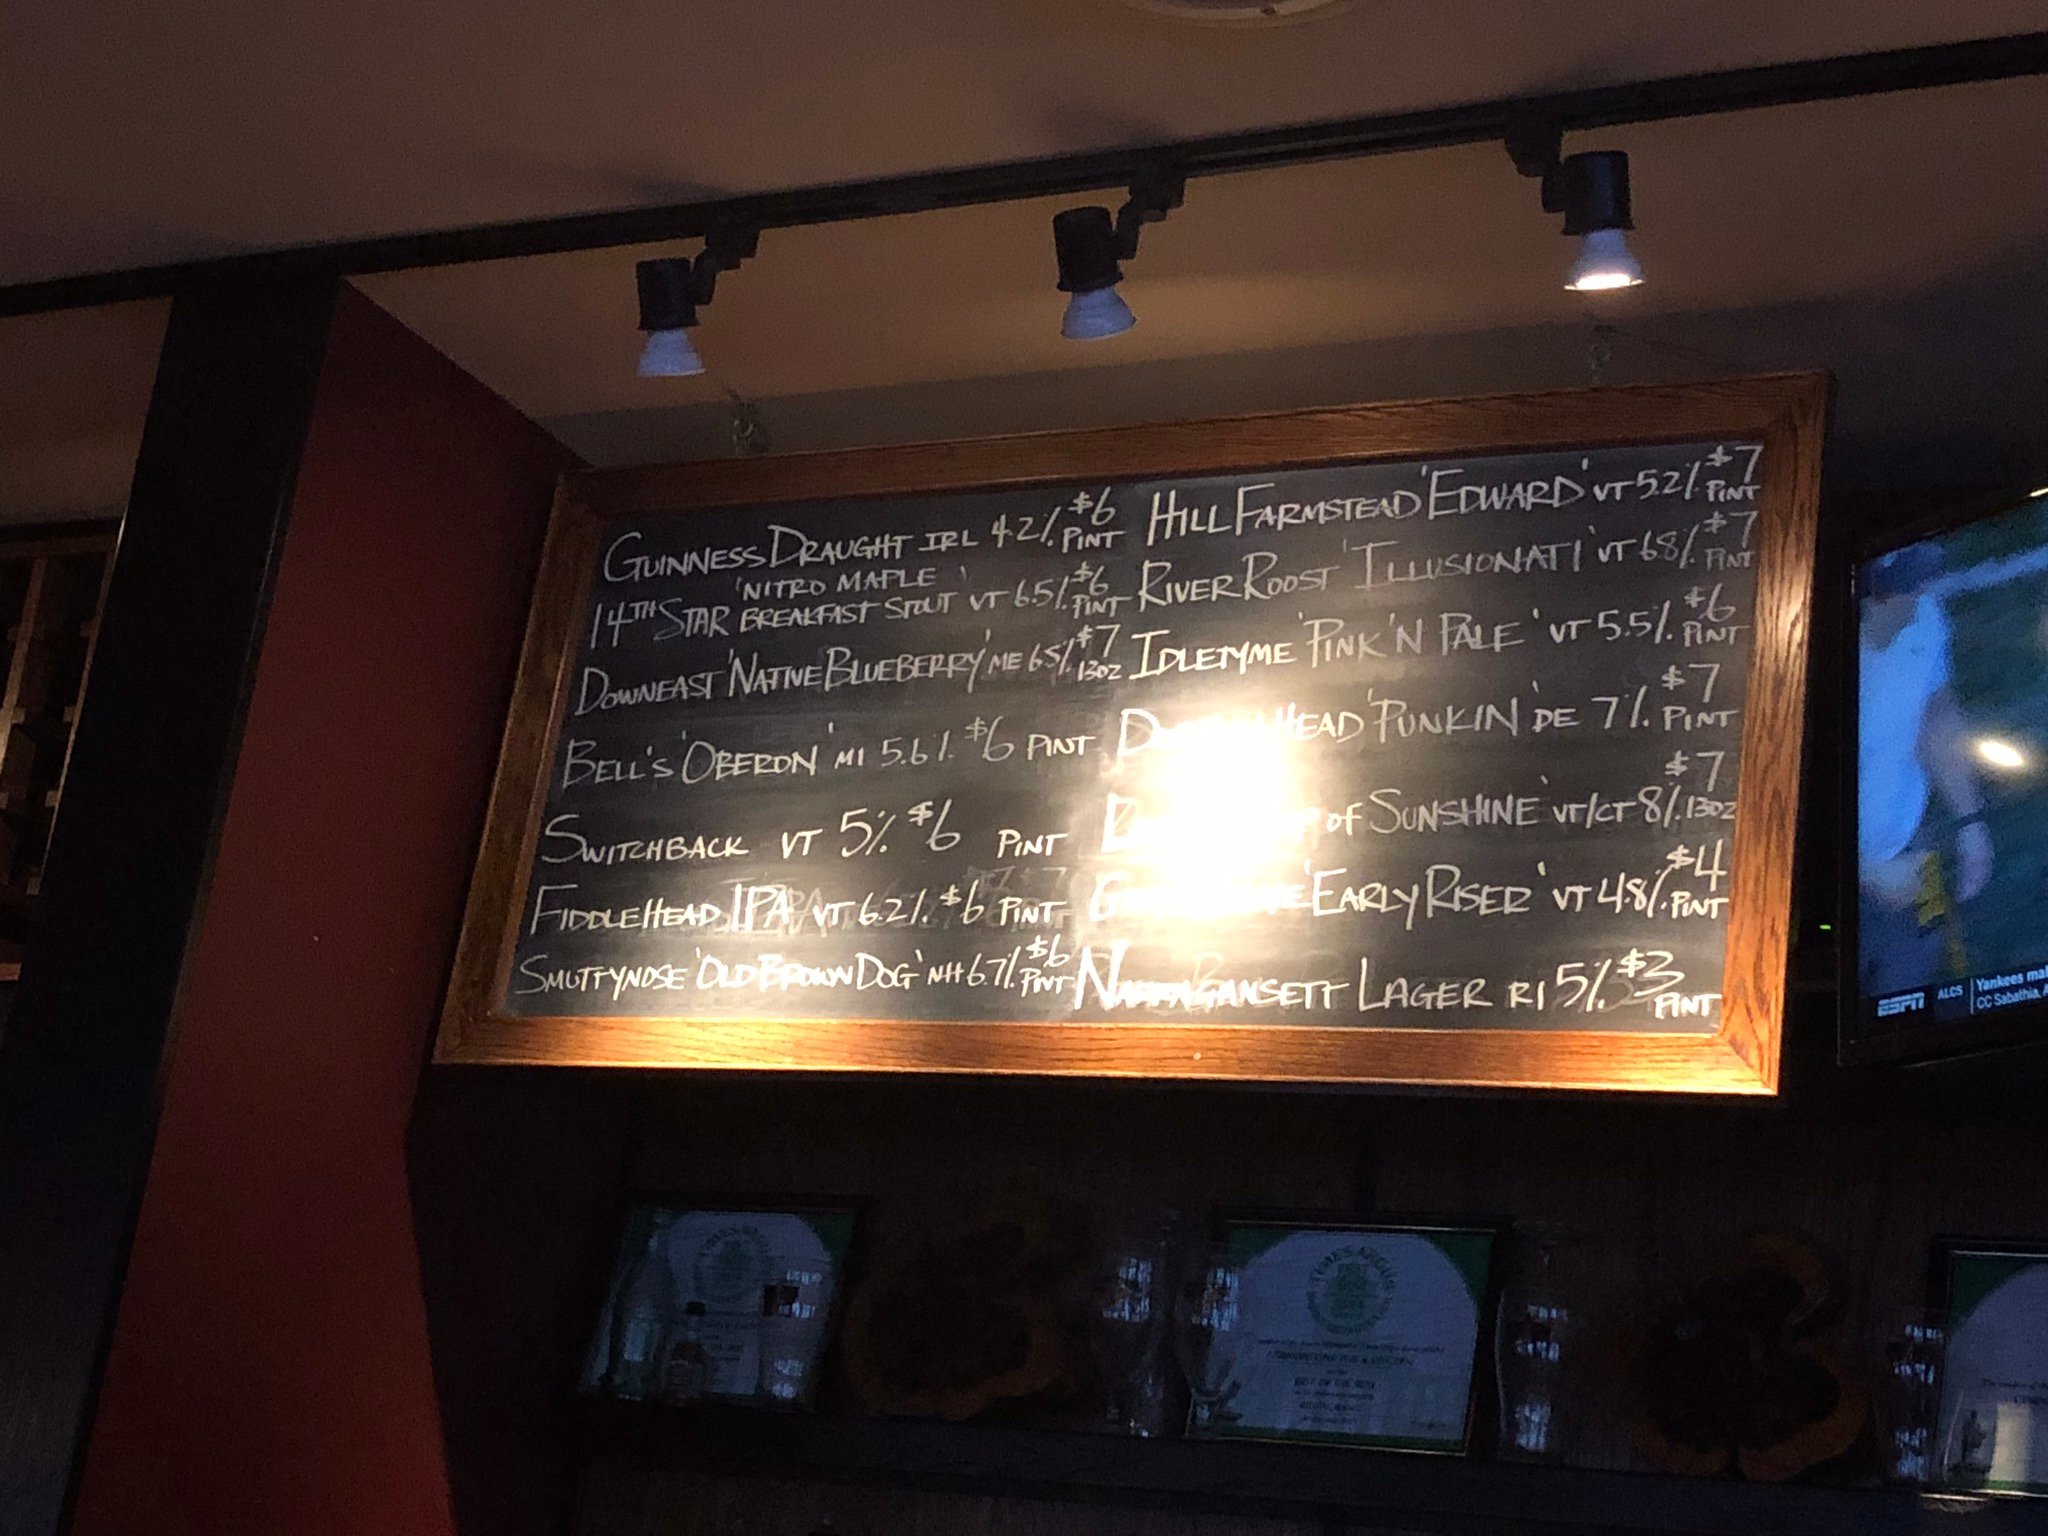 GUINNESS DRAUGHT IRL 4.2% $6 PINT
14TH STAR 'NITRO MAPLE BREAKFAST STOUT' VT 6.5% $6 PINT
DOWNEAST 'NATIVE BLUEBERRY' ME 6.5% $7 13OZ
BELL'S 'OBERON' MI 5.6% $6 PINT
SWITCHBACK VT 5% $6 PINT
FIDDLEHEAD IPA VT 6.2% $6 PINT
SMUTTYNOSE 'OLD BROWN DOG' NH 6.7% $6 PINT
HILL FARMSTEAD 'EDWARD' VT 5.2% $7 PINT
RIVER ROOST 'ILLUSIONATI' VT 6.8% $7 PINT
IDLETYME 'PINK 'N PALE' VT 5.5% $6 PINT
HEAD 'PUNKIN' DE 7% $7 PINT
OF SUNSHINE' VT/CT 8% $7 13OZ
'EARLY RISER' VT 4.8% $4 PINT
NARRAGANSETT LAGER RI 5% $3 PINT
ESPN ALCS
Yankees
CC Sabathia,
TIMES ARGUS